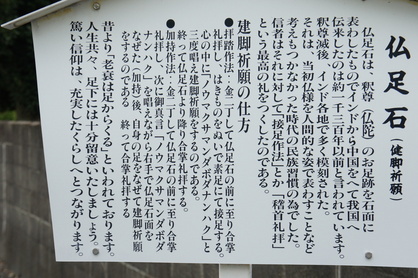 仏足石（健脚祈願）
仏足石は、釈尊（仏陀）のお足跡を石面に
表わしたものでインドから中国をへて我国へ
伝来したのは約一千三百年以前と言われています。
釈尊滅後、インド各地で多く模刻された。
それは、当初仏様を人間的な姿で表わすことなど
考えもつかなかった時代の民族習慣の為でした。
信者はそれに対して「接足作法」とか「稽首礼拝」
という最高の礼をつくしたのである。
建脚祈願の仕方
●拝踏作法・金二丁して仏足石の前に至り合掌
礼拝し、はきものをぬいで素足にて接足する。
心の中に「ノウマクサマンダボダナンハク」と
三度唱え建脚を祈願をするのである。
終って仏足石より降り合掌礼拝する。
●加持作法・金二丁して仏足石の前に至り合掌
礼拝し、次に御真言「ノウマクサマンダボダ
ナンハク」を唱えながら右手で仏足石面を
なぜた（加持）後、自身の足をなぜて建脚祈願
をするのである 終って合掌礼拝する
昔より「老衰は足からくる」といわれております。
人生共々、足下には十分留意いたしましょう。
篤い信仰は、充実したくらしへとつながります。